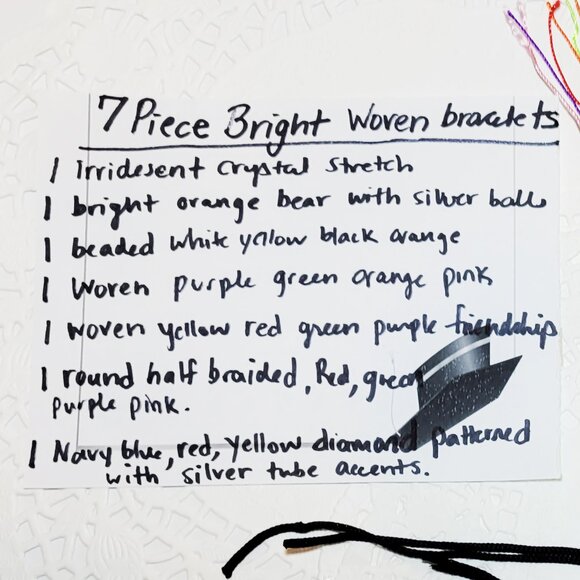 7 Piece Bright Woven bracelets
1 Irridesent Crystal Stretch
1 bright orange bear with silver balls
1 beaded white yellow black orange
1 Woven purple green orange pink
1 woven yellow red green purple friendship
1 round half braided, Red, green
purple pink.
1 Navy blue, red, yellow diamond patterned
with silver tube accents.